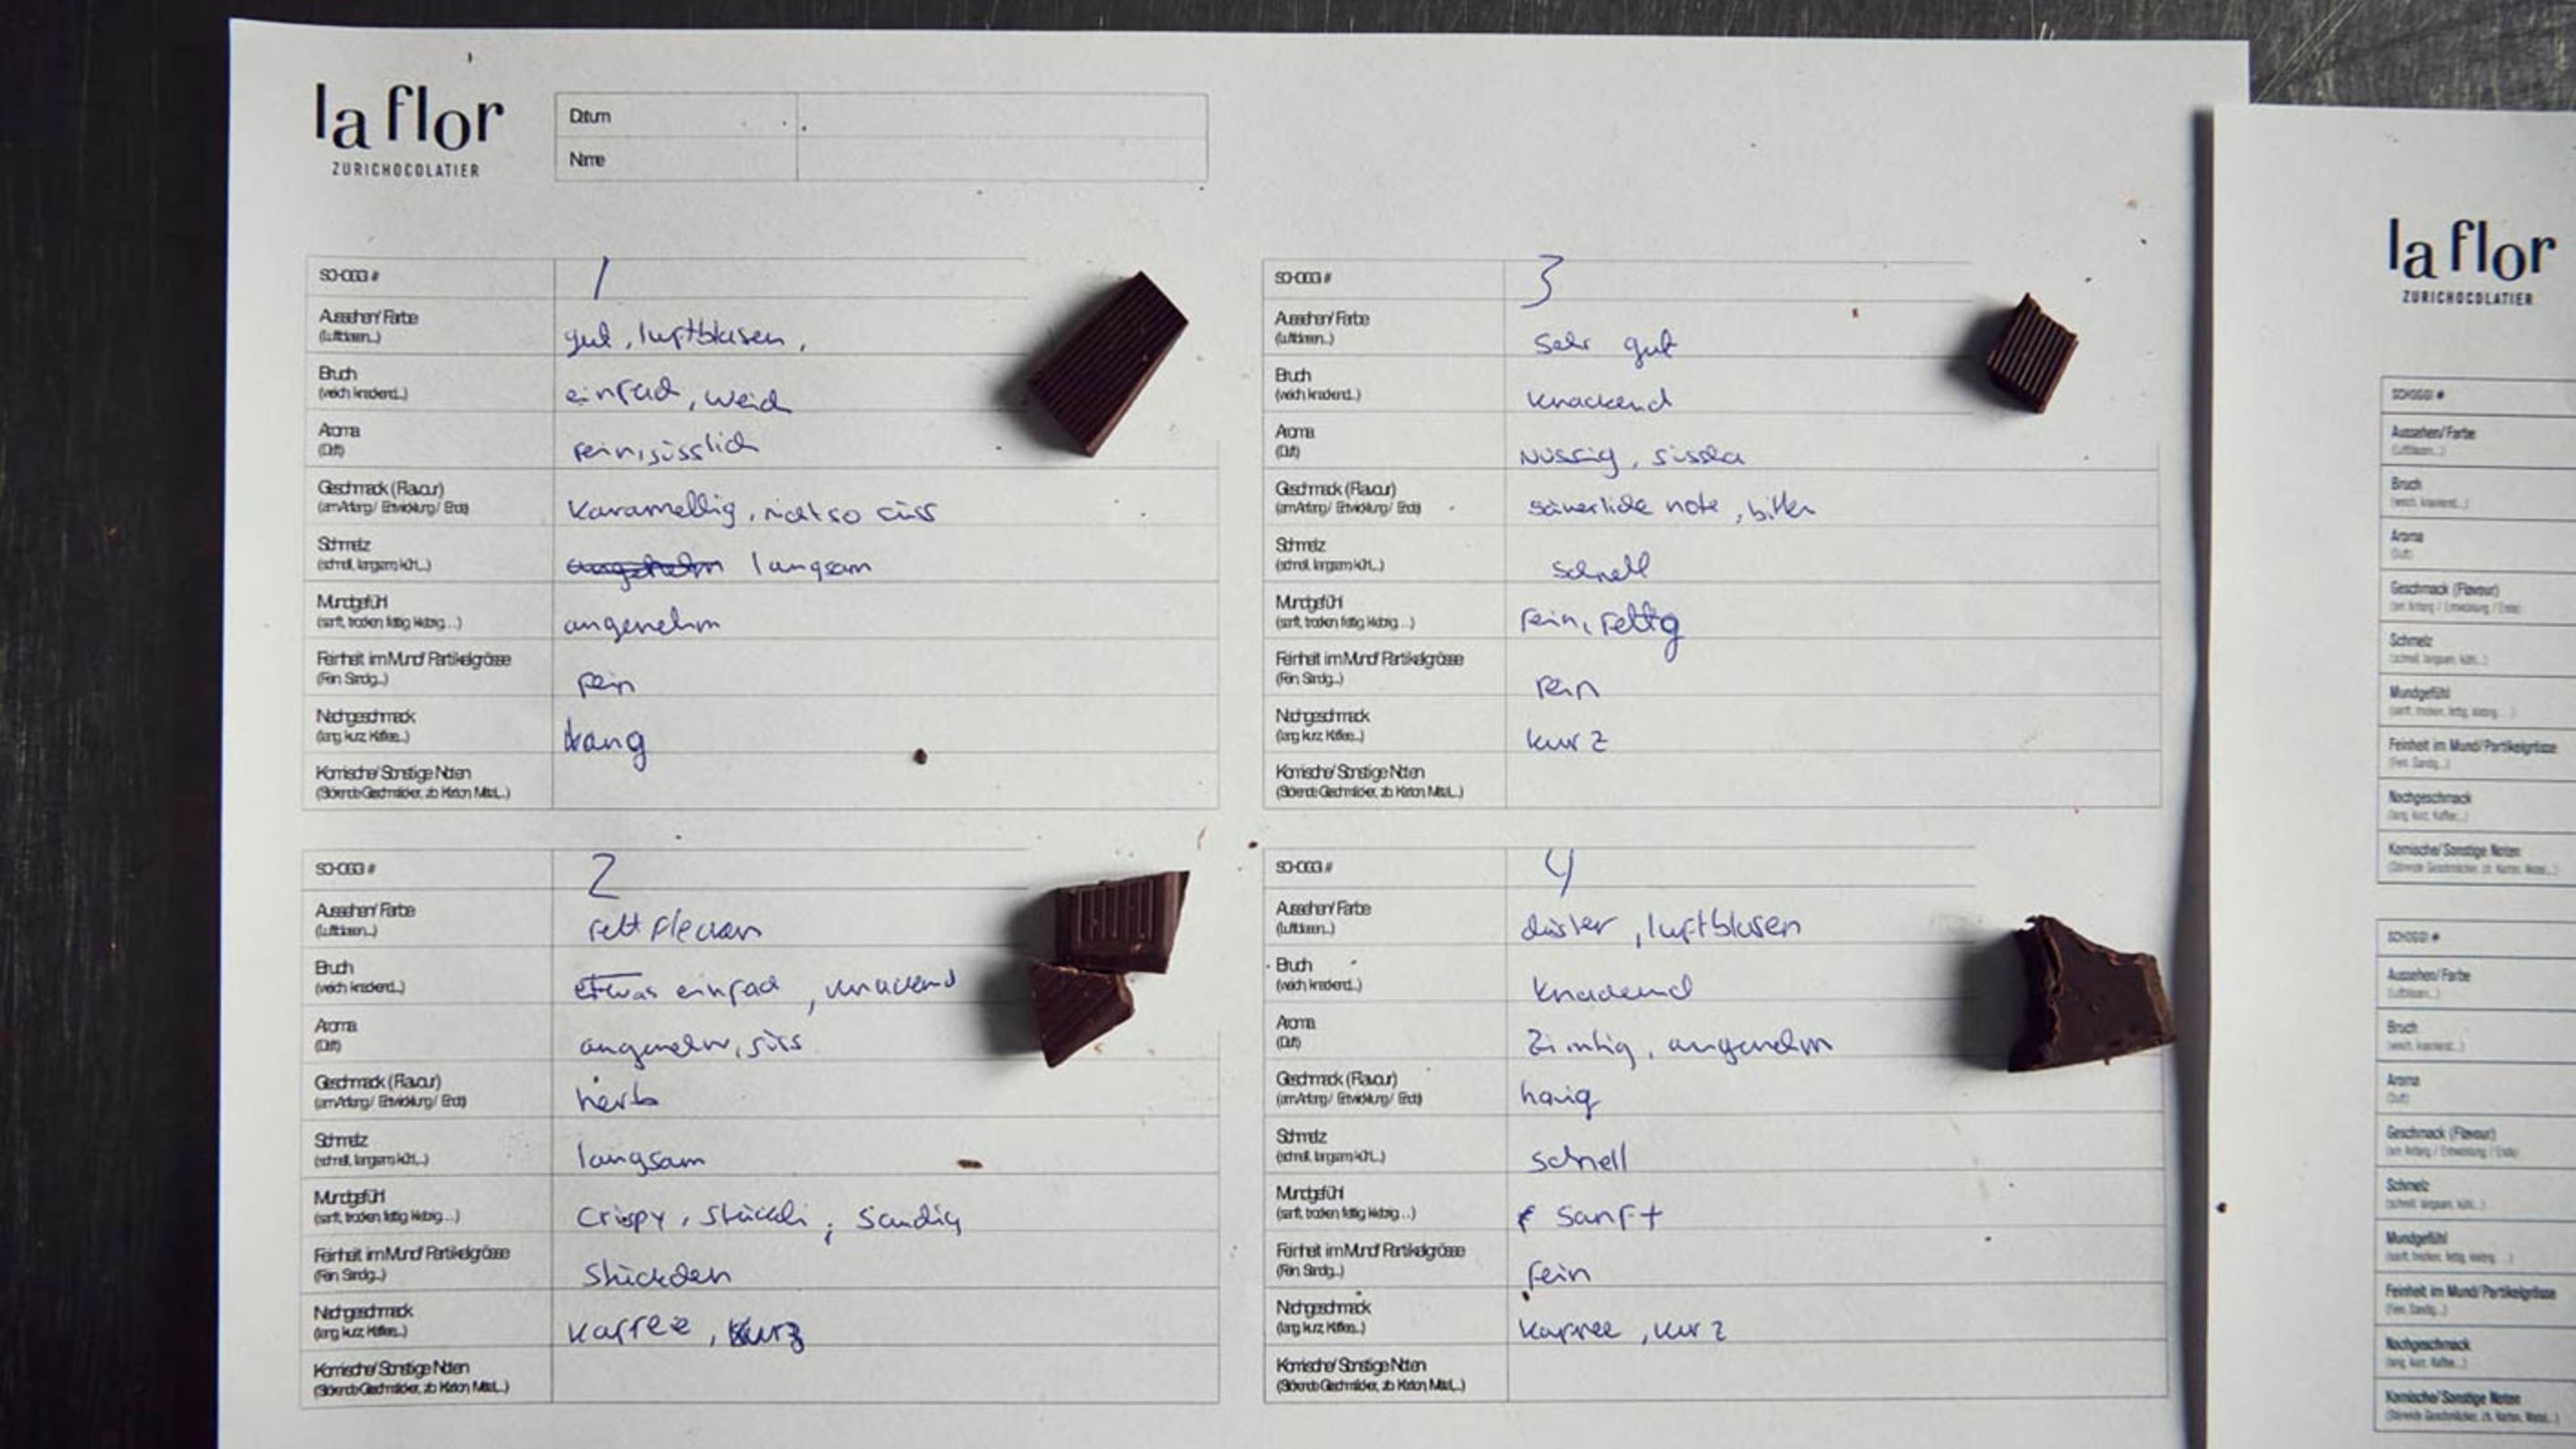 la flor
ZURICHOCOLATIER
Datum
Name
SCHOGGI # 1
Aussehen/ Farbe gut, luftblasen,
(Luftblasen...)
Bruch einfach, weich
(weich, knackend...)
Aroma fein, süsslich
(Duft)
Geschmack (Flavour) Karamellig, nicht so süss
(am Anfang / Entwicklung / Ende)
Schmelz angenehm langsam
(schnell, langsam, kühl...)
Mundgefühl angenehm
(sanft, trocken, fettig, klebrig ...)
Feinheit im Mund/ Partikelgrösse fein
(Fein, Sandig...)
Nachgeschmack lang
(lang, kurz, Kaffee...)
Komische/ Sonstige Noten
(Störende Geschmäcker, zb Karton, Metal...)
SCHOGGI # 2
Aussehen/ Farbe fett flecken
(Luftblasen...)
Bruch etwas einfach, knackend
(weich, knackend...)
Aroma angenehm, süss
(Duft)
Geschmack (Flavour) herb
(am Anfang / Entwicklung / Ende)
Schmelz langsam
(schnell, langsam, kühl...)
Mundgefühl Crispy, Stückli, Sandig
(sanft, trocken, fettig, klebrig ...)
Feinheit im Mund/ Partikelgrösse Stückchen
(Fein, Sandig...)
Nachgeschmack Kaffee, kurz
(lang, kurz, Kaffee...)
Komische/ Sonstige Noten
(Störende Geschmäcker, zb Karton, Metal...)
SCHOGGI # 3
Aussehen/ Farbe Sehr gut
(Luftblasen...)
Bruch knackend
(weich, knackend...)
Aroma Nussig,
(Duft)
Geschmack (Flavour) säuerliche note, bitter
(am Anfang / Entwicklung / Ende)
Schmelz schnell
(schnell, langsam, kühl...)
Mundgefühl fein, fettig
(sanft, trocken, fettig, klebrig ...)
Feinheit im Mund/ Partikelgrösse fein
(Fein, Sandig...)
Nachgeschmack kurz
(lang, kurz, Kaffee...)
Komische/ Sonstige Noten
(Störende Geschmäcker, zb Karton, Metal...)
SCHOGGI # 4
Aussehen/ Farbe düster, luftblasen
(Luftblasen...)
Bruch knackend
(weich, knackend...)
Aroma Zimtig, angenehm
(Duft)
Geschmack (Flavour) honig
(am Anfang / Entwicklung / Ende)
Schmelz schnell
(schnell, langsam, kühl...)
Mundgefühl sanft
(sanft, trocken, fettig, klebrig ...)
Feinheit im Mund/ Partikelgrösse fein
(Fein, Sandig...)
Nachgeschmack Kaffee, kurz
(lang, kurz, Kaffee...)
Komische/ Sonstige Noten
(Störende Geschmäcker, zb Karton, Metal...)
la flor
ZURICHOCOLATIER
SCHOGGI #
Aussehen/ Farbe
(Luftblasen...)
Bruch
(weich, knackend...)
Aroma
(Duft)
Geschmack (Flavour)
(am Anfang / Entwicklung / Ende)
Schmelz
(schnell, langsam, kühl...)
Mundgefühl
(sanft, trocken, fettig, klebrig ...)
Feinheit im Mund/ Partikelgrösse
(Fein, Sandig...)
Nachgeschmack
(lang, kurz, Kaffee...)
Komische/ Sonstige Noten
(Störende Geschmäcker, zb Karton, Metal...)
SCHOGGI #
Aussehen/ Farbe
(Luftblasen...)
Bruch
(weich, knackend...)
Aroma
(Duft)
Geschmack (Flavour)
(am Anfang / Entwicklung / Ende)
Schmelz
(schnell, langsam, kühl...)
Mundgefühl
(sanft, trocken, fettig, klebrig ...)
Feinheit im Mund/ Partikelgrösse
(Fein, Sandig...)
Nachgeschmack
(lang, kurz, Kaffee...)
Komische/ Sonstige Noten
(Störende Geschmäcker, zb Karton, Metal...)